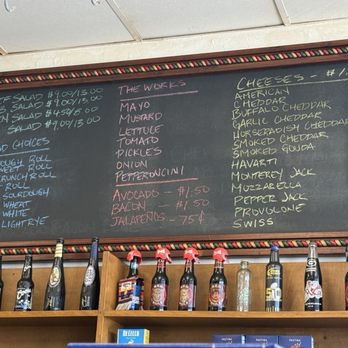 SALAD $9.00/13.00
SALAD $9.00/13.00
SALAD
SALAD 9.00/13.00
CHOICES
ROLL
ROLL
ROLL
ROLL
SOURDOUGH
WHEAT
WHITE
LIGHT RYE
THE WORKS
MAYO
MUSTARD
LETTUCE
TOMATO
PICKLES
ONION
PEPPERONCINI
AVOCADO - $1.50
BACON - $1.50
JALAPEÑOS - 75¢
CHEESES -
AMERICAN
CHEDDAR
BUFFALO CHEDDAR
GARLIC CHEDDAR
HORSERADISH CHEDDAR
SMOKED CHEDDAR
SMOKED GOUDA
HAVARTI
MONTEREY JACK
MOZZARELLA
PEPPER JACK
PROVOLONE
SWISS